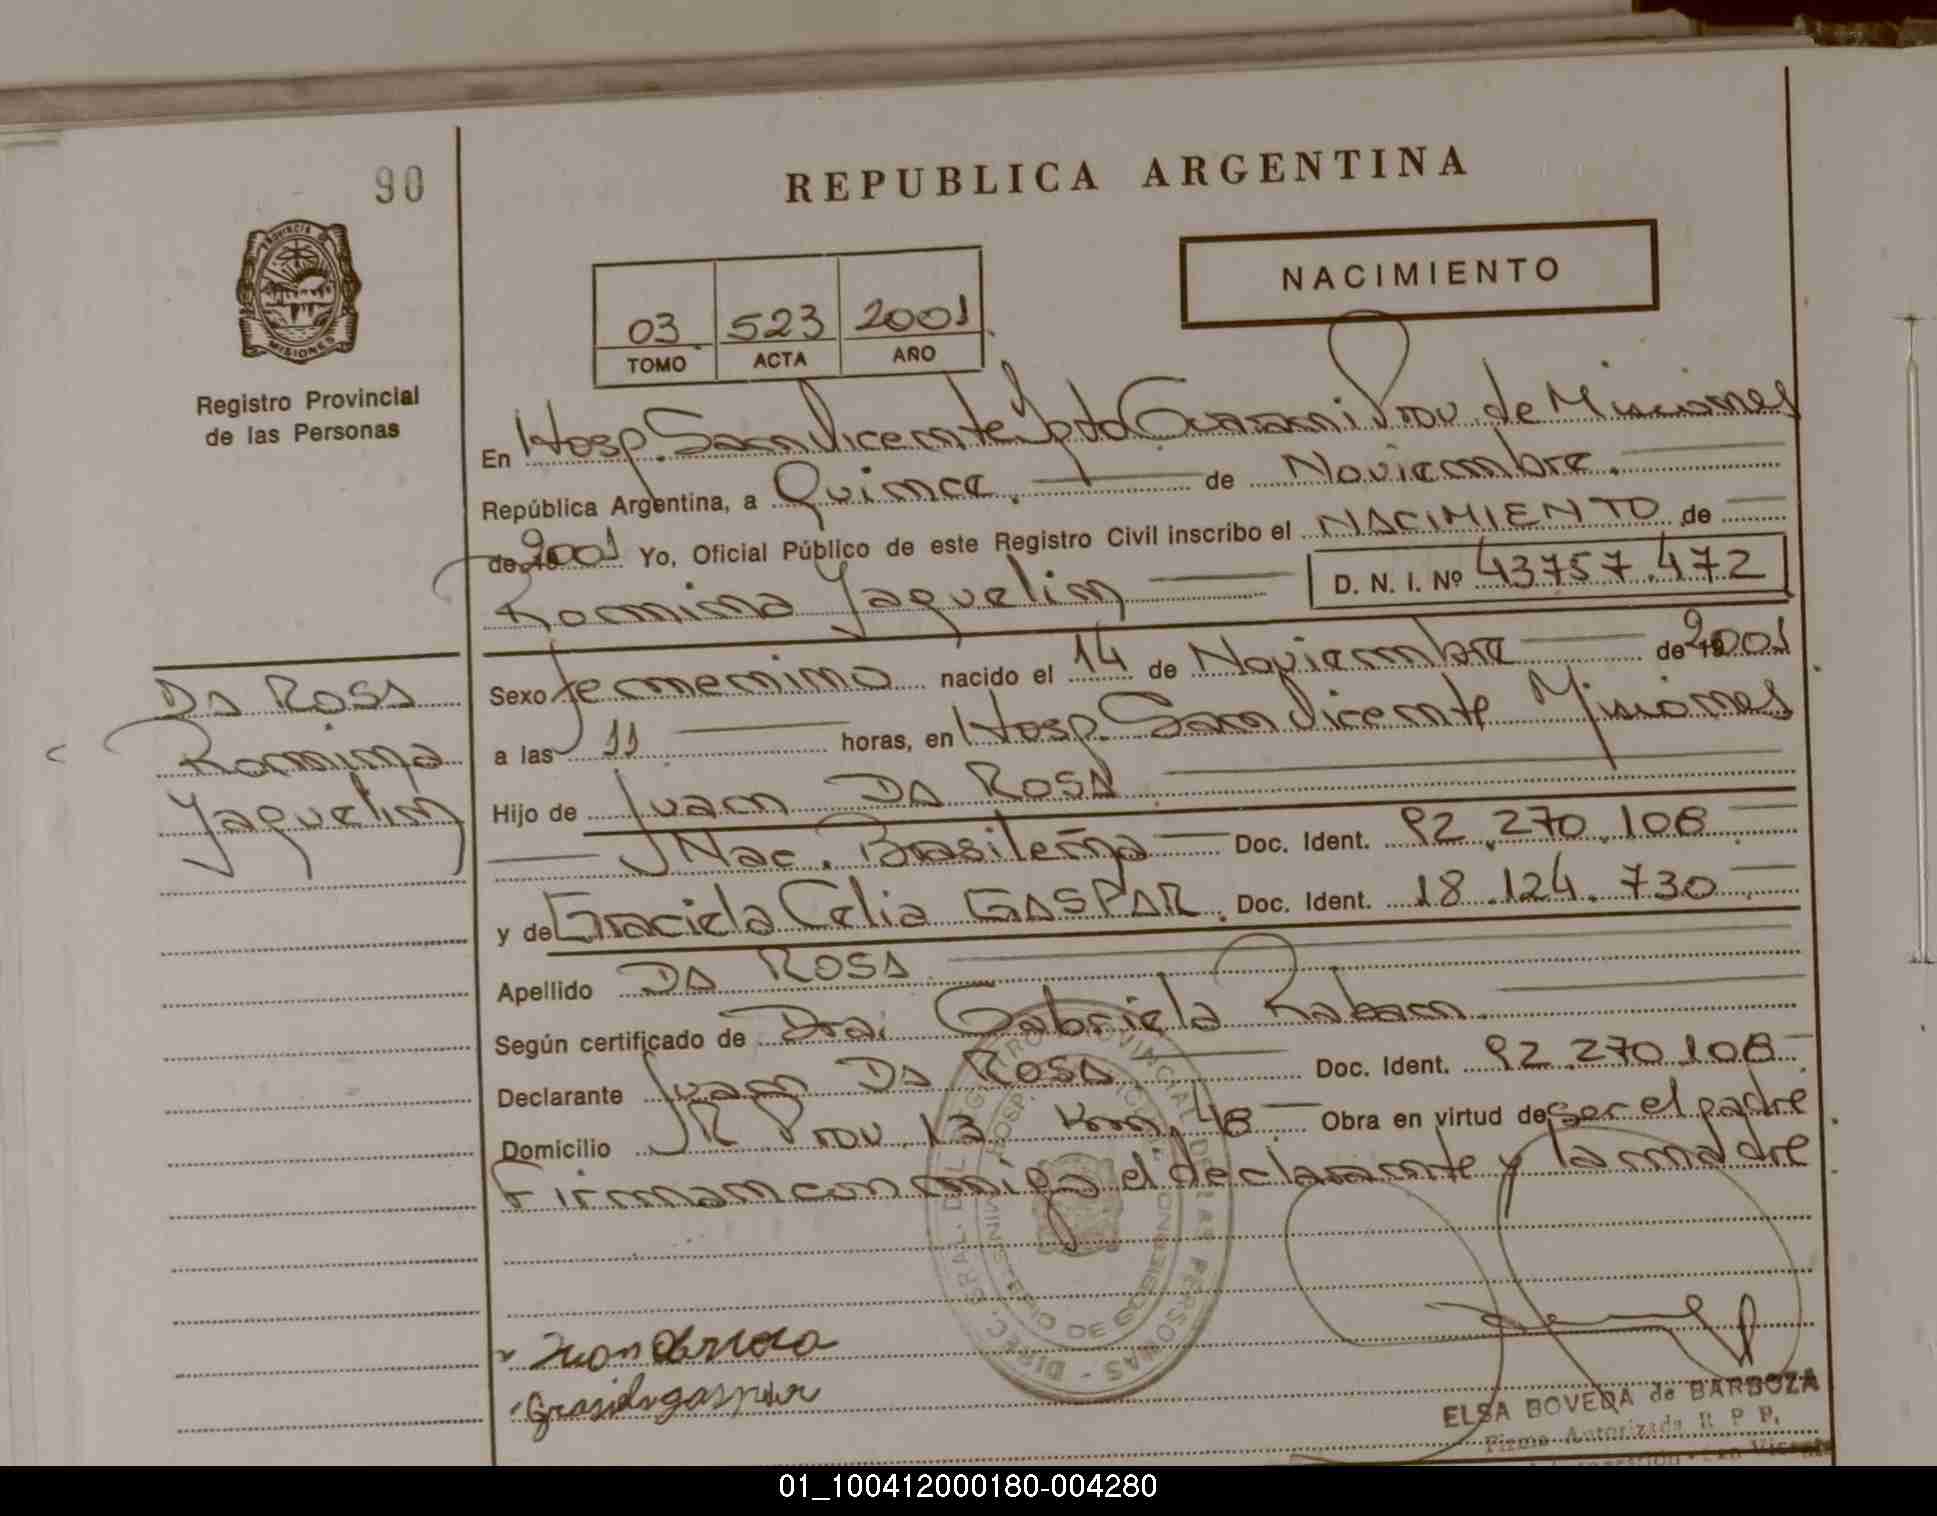 90
REPUBLICA ARGENTINA
PROVINCIA DE MISIONES
Registro Provincial
de las Personas
03 523 2001
TOMO ACTA AÑO
NACIMIENTO
En Hosp. San Vicente Dpto Guarani Prov. de Misiones
República Argentina, a Quince. de Noviembre.
de 2001 Yo, Oficial Público de este Registro Civil inscribo el NACIMIENTO de
Romina Jaquelin D. N. I. Nº 43757.472
Da Rosa
Romina
Jaquelin
Sexo femenino nacido el 14 de Noviembre de 2001
a las 11 horas, en Hosp. San Vicente Misiones
Hijo de Juan DA ROSA
Nac. Brasileña Doc. Ident. 92.270.108
y de Graciela Celia GASPAR. Doc. Ident. 18.124.730
Apellido DA ROSA
Según certificado de Dra. Gabriela Raban.
Declarante Juan DA ROSA Doc. Ident. 92.270.108
Domicilio R Prov. 13 Km. 48 Obra en virtud de ser el padre
Firman conmigo el declarante y la madre
DIREC. GRAL. DEL REGISTRO PROVINCIAL DE LAS PERSONAS
MINISTERIO DE GOBIERNO
ELSA BOVEDA de BARBOZA
Firma Autorizada R P P.
01_100412000180-004280